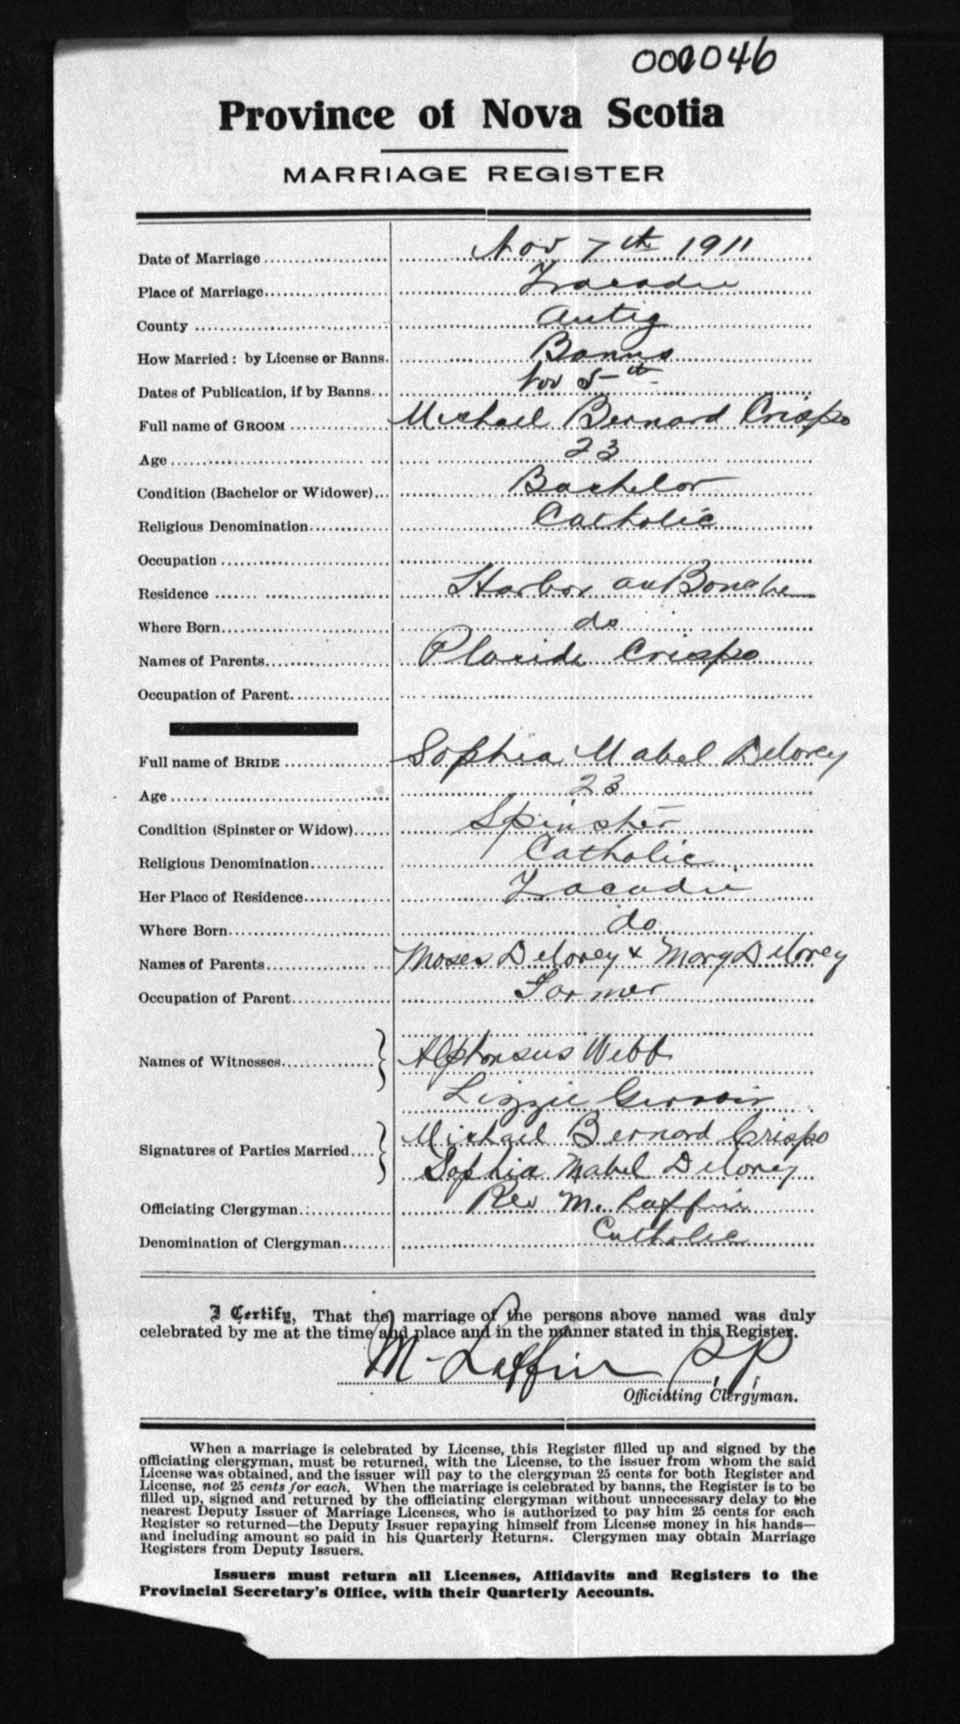 000046
Province of Nova Scotia
MARRIAGE REGISTER
Date of Marriage Nov 7th 1911
Place of Marriage Tracadie
County Antig
How Married: by License or Banns. Banns
Dates of Publication, if by Banns Nov 5th
Full name of GROOM Michael Bernard Crispo
Age 23
Condition (Bachelor or Widower) Bachelor
Religious Denomination Catholic
Occupation
Residence Harbor au Bouche
Where Born do
Names of Parents Placide Crispo
Occupation of Parent
Full name of BRIDE Sophia Mabel Delorey
Age 23
Condition (Spinster or Widow) Spinster
Religious Denomination Catholic
Her Place of Residence Tracadie
Where Born do
Names of Parents Moses Delorey & Mary Delorey
Occupation of Parent Farmer
Names of Witnesses Alphonsus Webb
Lizzie Gerroir
Signatures of Parties Married Michael Bernard Crispo
Sophia Mabel Delorey
Officiating Clergyman Rev M. Laffin
Denomination of Clergyman Catholic
I Certify, That the marriage of the persons above named was duly
celebrated by me at the time and place and in the manner stated in this Register.
M. Laffin P.P.
Officiating Clergyman.
When a marriage is celebrated by License, this Register filled up and signed by the
officiating clergyman, must be returned, with the License, to the issuer from whom the said
License was obtained, and the issuer will pay to the clergyman 25 cents for both Register and
License, not 25 cents for each. When the marriage is celebrated by banns, the Register is to be
filled up, signed and returned by the officiating clergyman without unnecessary delay to the
nearest Deputy Issuer of Marriage Licenses, who is authorized to pay him 25 cents for each
Register so returned—the Deputy Issuer repaying himself from License money in his hands—
and including amount so paid in his Quarterly Returns. Clergymen may obtain Marriage
Registers from Deputy Issuers.
Issuers must return all Licenses, Affidavits and Registers to the
Provincial Secretary's Office, with their Quarterly Accounts.